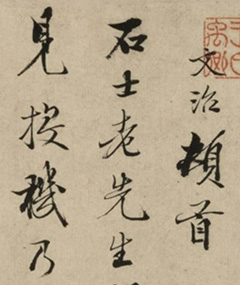 文治頓首
石士老先生
見授機乃